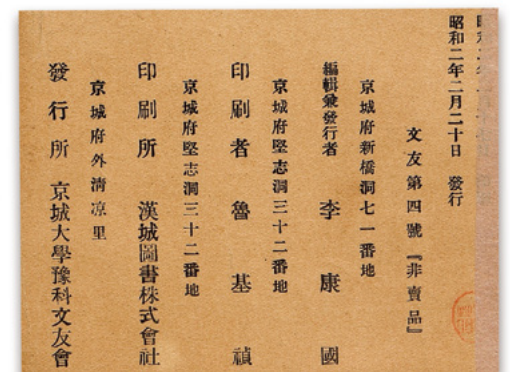 昭和二年二月二十日 發行
文友第四號『非賣品』
京城府新橋洞七一番地
編輯兼發行者 李康國
京城府堅志洞三十二番地
印刷者 魯基禎
京城府堅志洞三十二番地
印刷所 漢城圖書株式會社
京城府外淸凉里
發行所 京城大學豫科文友會